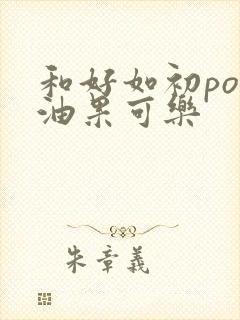 和好如初po
油果可樂
朱章義